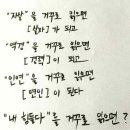 "자살"을 거꾸로 읽으면
[살자]가 되고
"역경"을 거꾸로 읽으면
[경력]이 되고
"인연"을 거꾸로 읽으면
[연인]이 된다
"내 힘들다"을 거꾸로 읽으면?